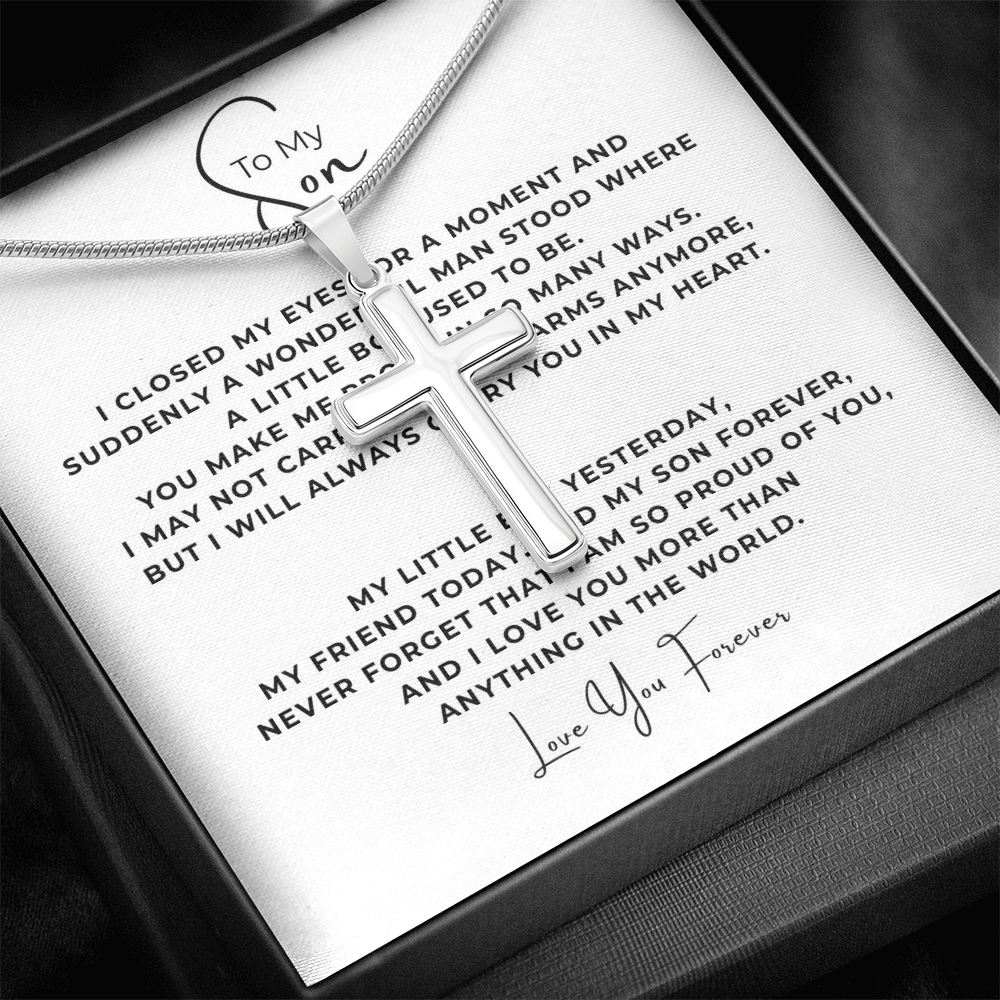 To My
Son
I CLOSED MY EYES FOR A MOMENT AND
SUDDENLY A WONDERFUL MAN STOOD WHERE
A LITTLE BOY USED TO BE.
YOU MAKE ME PROUD IN SO MANY WAYS.
I MAY NOT CARRY ARMS ANYMORE,
BUT I WILL ALWAYS CARRY YOU IN MY HEART.
MY LITTLE BOY YESTERDAY,
MY FRIEND TODAY, AND MY SON FOREVER,
NEVER FORGET THAT I AM SO PROUD OF YOU,
AND I LOVE YOU MORE THAN
ANYTHING IN THE WORLD.
Love You Forever